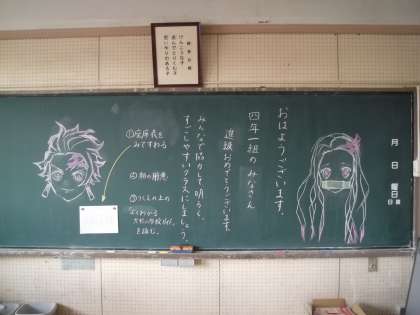 けんこうな子
進んでとりくむ子
思いやりのある子
月 日 曜日
日直
おはようございます。
四年一組のみなさん
進級おめでとうございます。
みんなで協力して明るく、
すごしやすいクラスにしましょう。
①座席表を
みてすわる
②朝の用意
③つくえの上の
を読む。